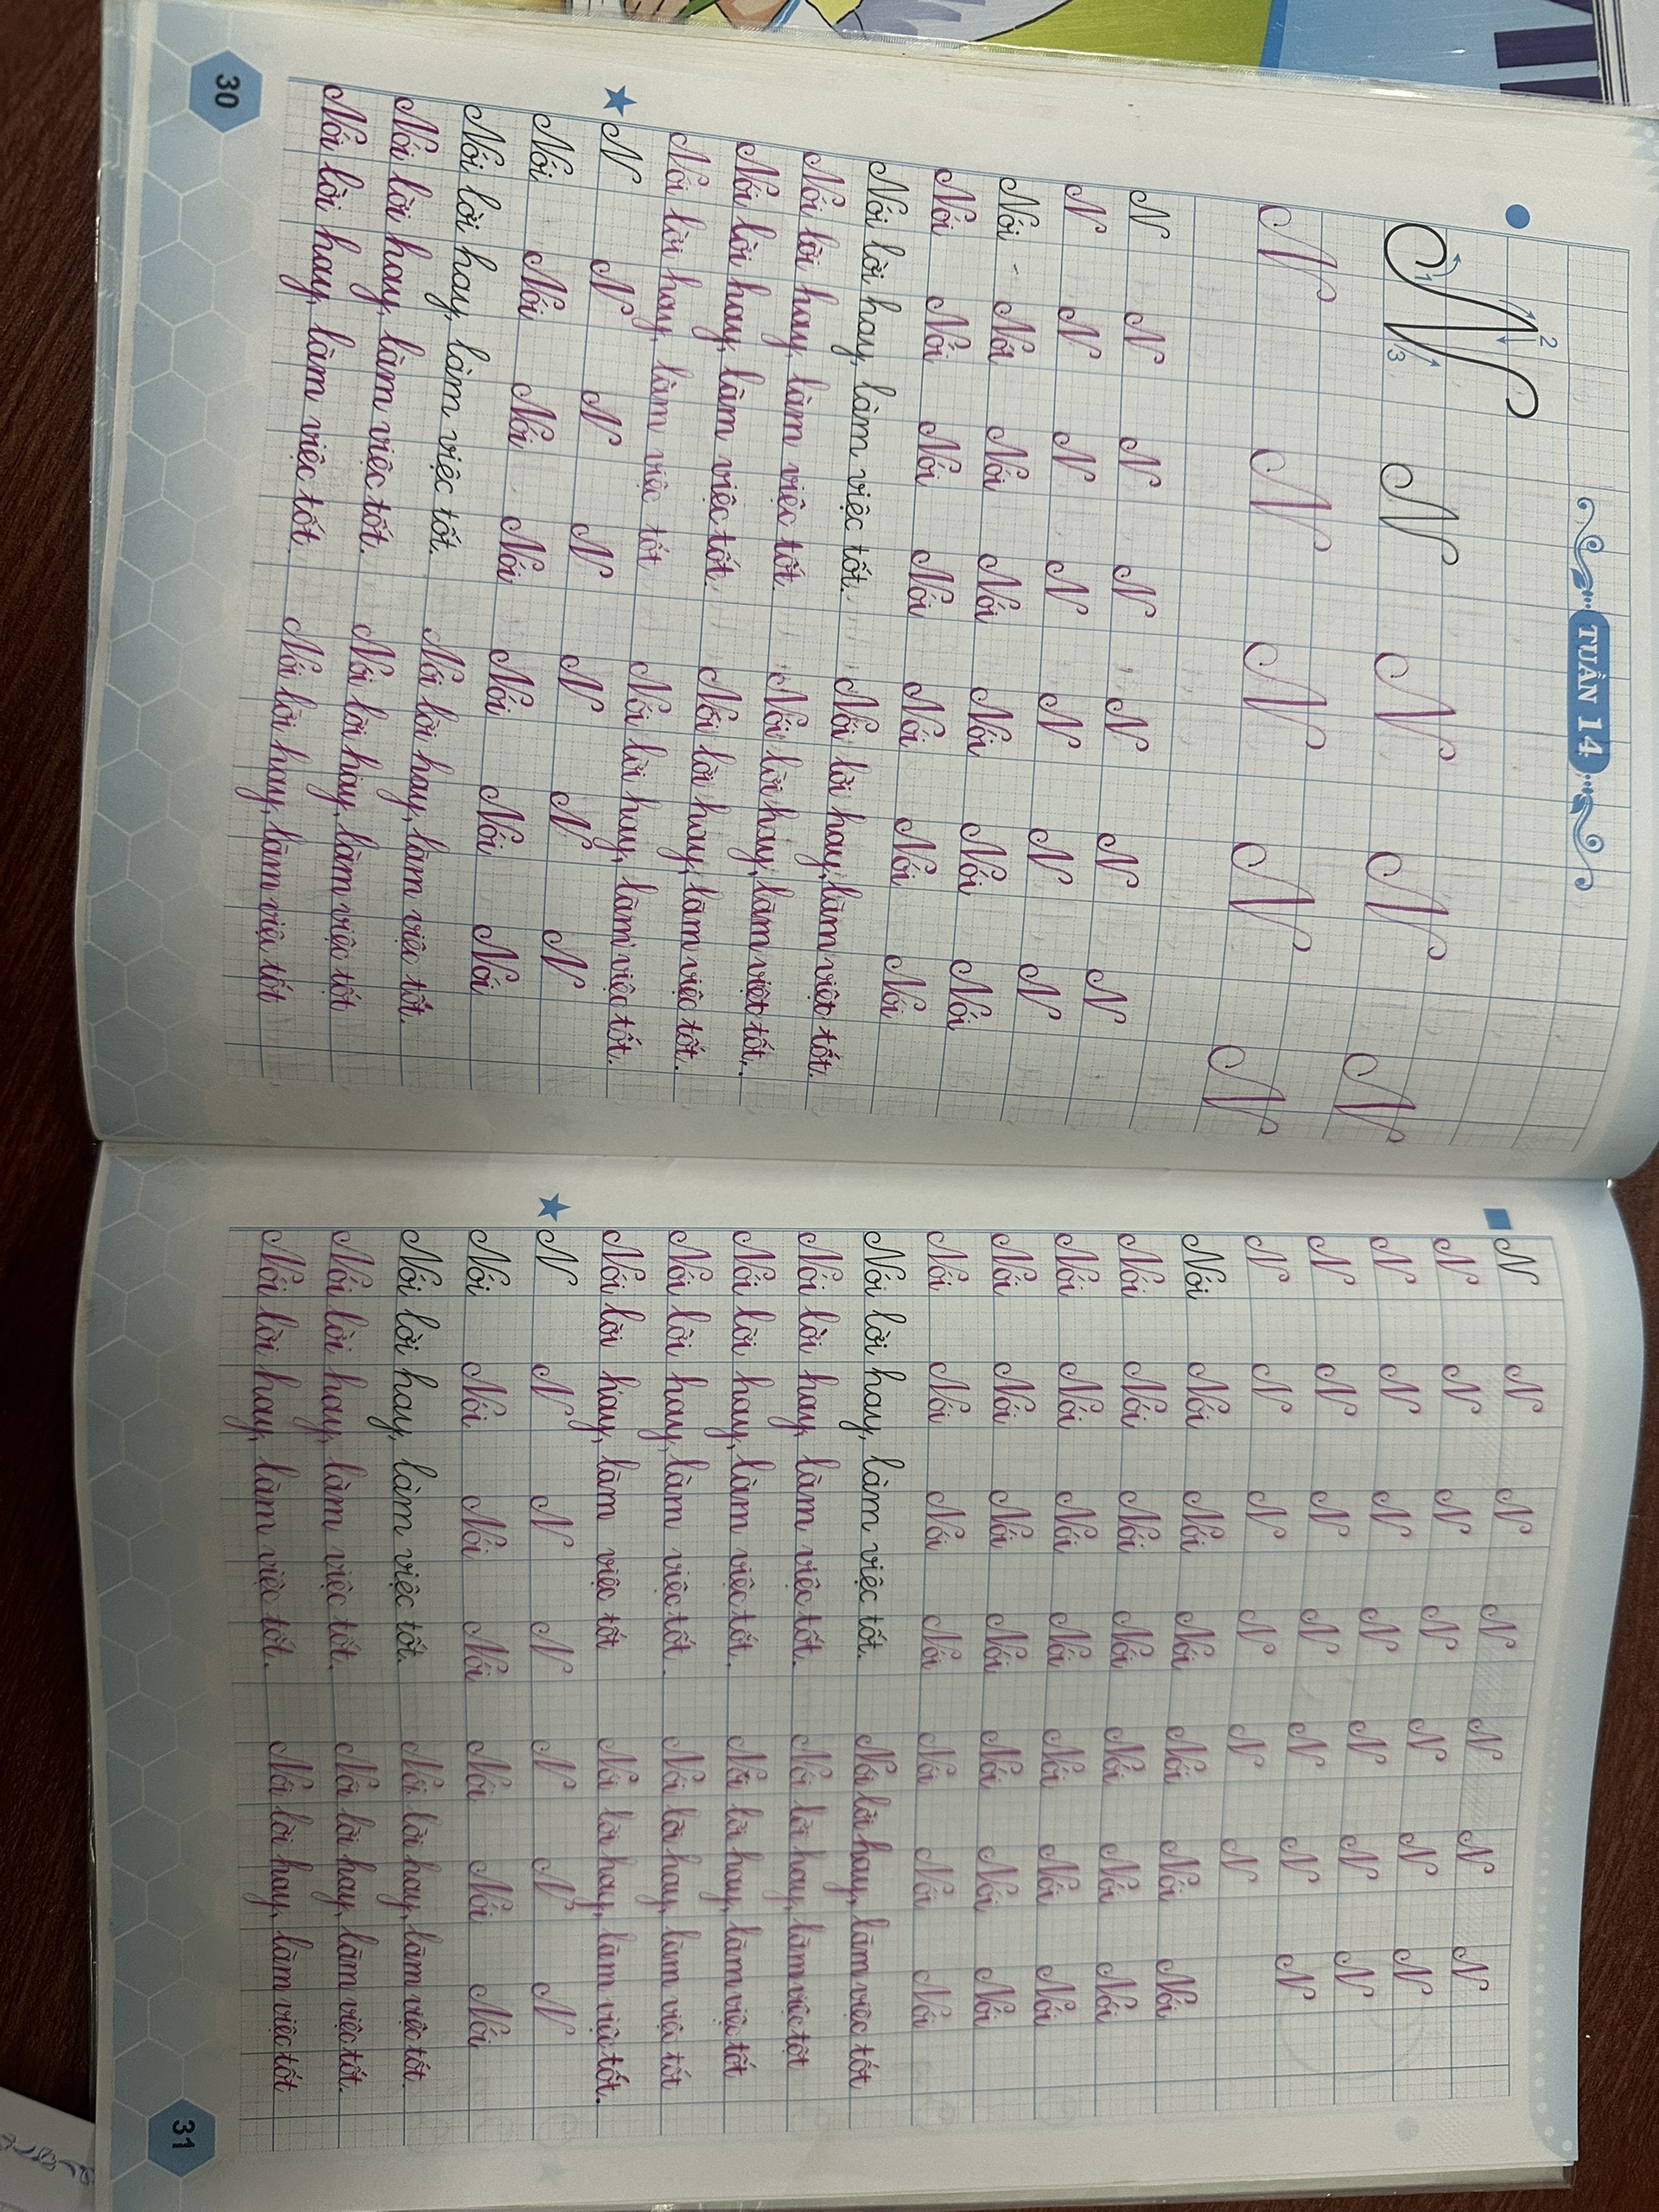 TUẦN 14
1 2 3
N N N N N
N N N N N
N N N N N N N
N N N N N N N
Nói Nói Nói Nói Nói Nói Nói
Nói Nói Nói Nói Nói Nói Nói
Nói lời hay, làm việc tốt. Nói lời hay, làm việc tốt.
Nói lời hay, làm việc tốt. Nói lời hay, làm việc tốt.
Nói lời hay, làm việc tốt. Nói lời hay, làm việc tốt.
Nói lời hay, làm việc tốt Nói lời hay, làm việc tốt.
N N N N N N N
Nói Nói Nói Nói Nói Nói Nói
Nói lời hay, làm việc tốt. Nói lời hay, làm việc tốt.
Nói lời hay, làm việc tốt. Nói lời hay, làm việc tốt
Nói lời hay, làm việc tốt. Nói lời hay, làm việc tốt
30
N N N N N N N
N N N N N N N
N N N N N N N
N N N N N N N
N N N N N N
Nói Nói Nói Nói Nói Nói Nói
Nói Nói Nói Nói Nói Nói Nói
Nói Nói Nói Nói Nói Nói Nói
Nói Nói Nói Nói Nói Nói Nói
Nói Nói Nói Nói Nói Nói Nói
Nói lời hay, làm việc tốt. Nói lời hay, làm việc tốt
Nói lời hay, làm việc tốt. Nói lời hay, làm việc tốt
Nói lời hay, làm việc tốt. Nói lời hay, làm việc tốt
Nói lời hay, làm việc tốt. Nói lời hay, làm việc tốt
Nói lời hay, làm việc tốt Nói lời hay, làm việc tốt.
N N N N N N N
Nói Nói Nói Nói Nói Nói Nói
Nói lời hay, làm việc tốt. Nói lời hay, làm việc tốt.
Nói lời hay, làm việc tốt. Nói lời hay, làm việc tốt.
Nói lời hay, làm việc tốt. Nói lời hay, làm việc tốt
31